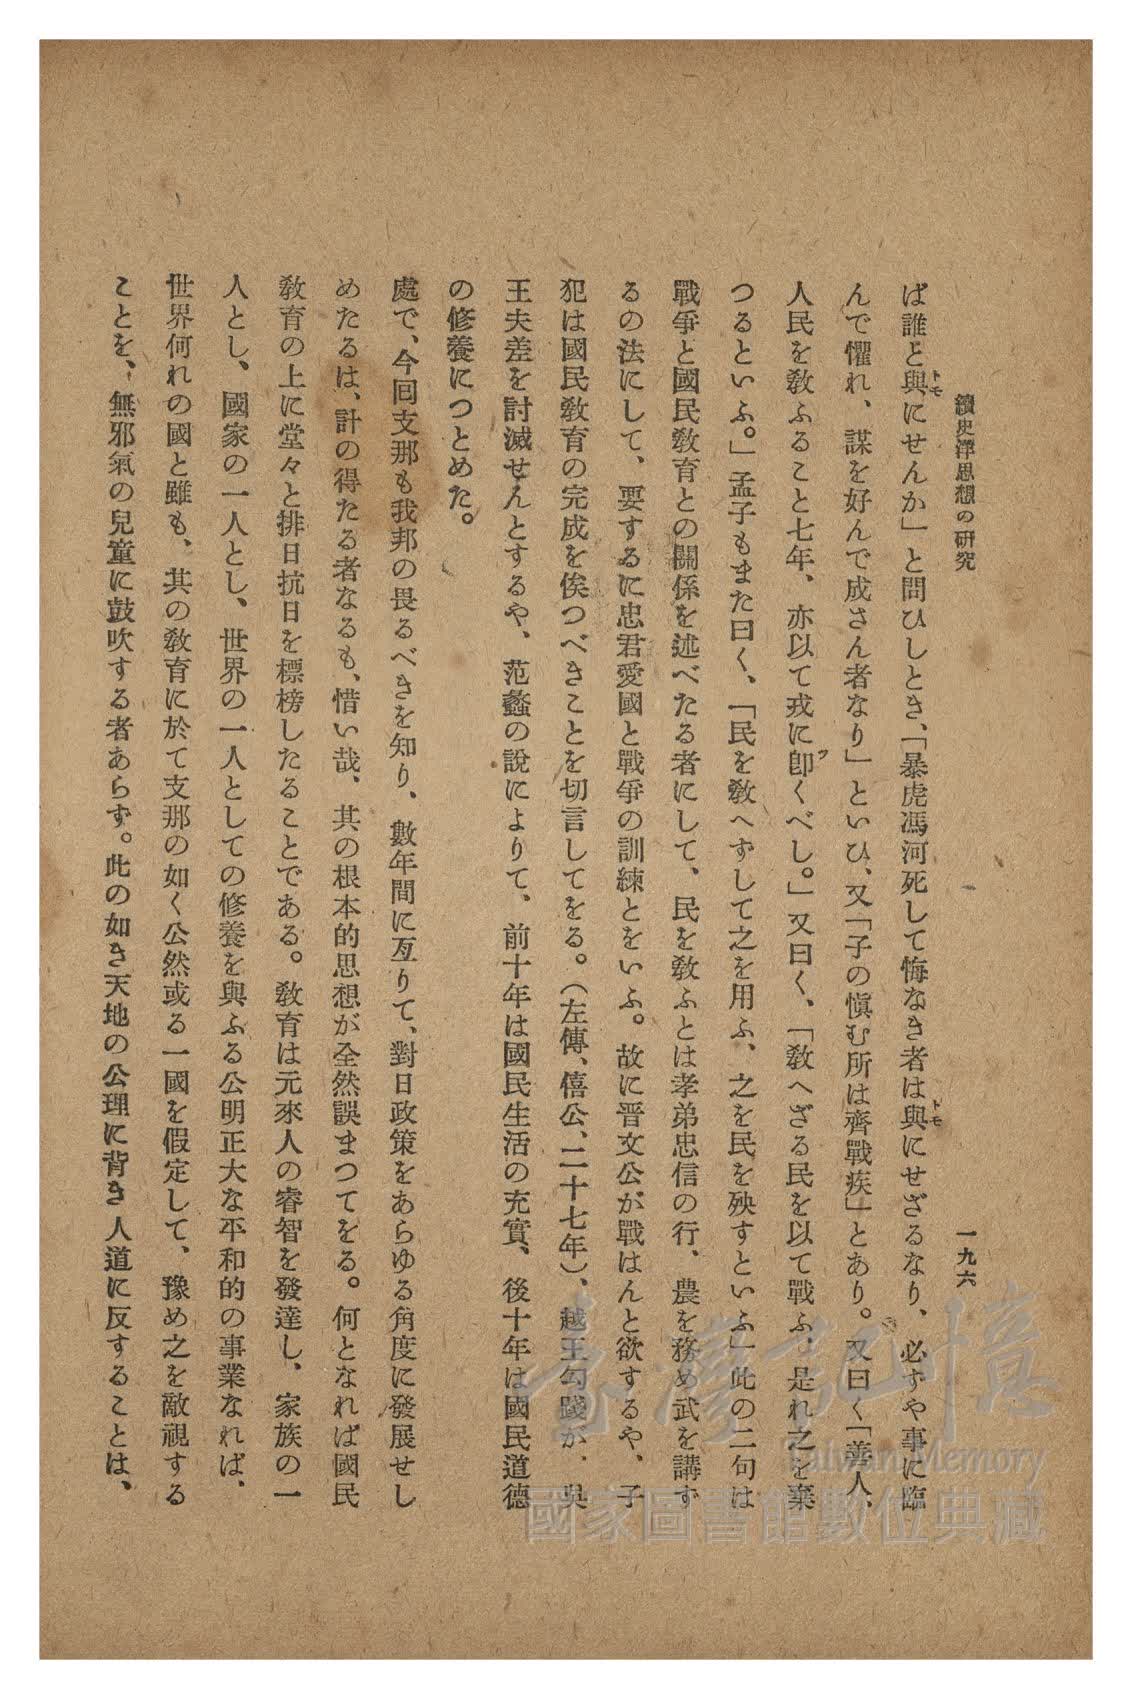 續史澤思想の研究
一九六
ば誰と與にせんか」と問ひしとき、「暴虎馮河死して悔なき者は與にせざるなり、必ずや事に臨
トモ
トモ
んで懼れ、謀を好んで成さん者なり」といひ、又「子の愼む所は齊戰疾」とあり。又曰く「善人、
人民を敎ふること七年、亦以て戎に卽くべし。」又曰く、「敎へざる民を以て戰ふ、是れ之を棄
ツ
つるといふ。」孟子もまた曰く、「民を敎へずして之を用ふ、之を民を殃すといふ」此の二句は
戰爭と國民敎育との關係を述べたる者にして、民を敎ふとは孝弟忠信の行、農を務め武を講ず
るの法にして、要するに忠君愛國と戰爭の訓練とをいふ。故に晋文公が戰はんと欲するや、子
犯は國民敎育の完成を俟つべきことを切言してをる。（左傳、僖公、二十七年）、越王勾踐が、吳
王夫差を討滅せんとするや、范蠡の說によりて、前十年は國民生活の充實、後十年は國民道德
の修養につとめた。
處で、今回支那も我邦の畏るべきを知り、數年間に亙りて、對日政策をあらゆる角度に發展せし
めたるは、計の得たる者なるも、惜い哉、其の根本的思想が全然誤まつてをる。何となれば國民
敎育の上に堂々と排日抗日を標榜したることである。敎育は元來人の睿智を發達し、家族の一
人とし、國家の一人とし、世界の一人としての修養を與ふる公明正大な平和的の事業なれば、
世界何れの國と雖も、其の敎育に於て支那の如く公然或る一國を假定して、豫め之を敵視する
ことを、無邪氣の兒童に鼓吹する者あらず。此の如き天地の公理に背き人道に反することは、
臺灣記憶
Taiwan Memory
國家圖書館數位典藏